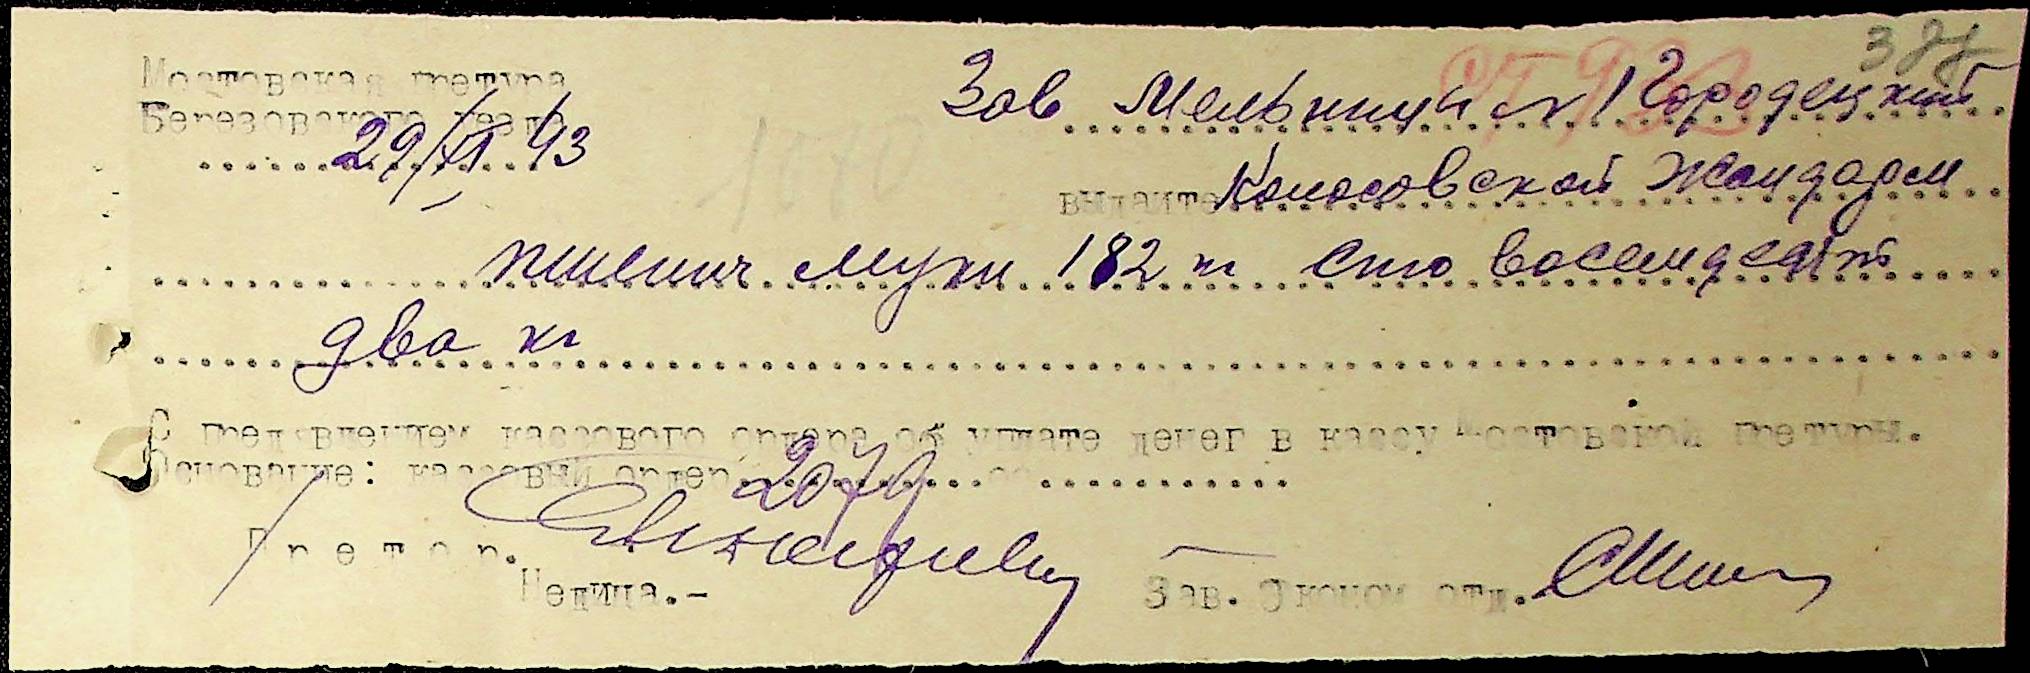 377
Мостовская претура
Березовского уезда
29/XI 43
Зав Мельницы № 1 Городецкий
выдайте Колосовской Жандарм
пшенич муки 182 кг сто восемдесят
два кг
С пред'влением кассового ордера об уплате денег в кассу Мостовской претуры.
Основание: кассовый ордер 2079 от
Претор.
Недица.-
Зав. Эконом отд.